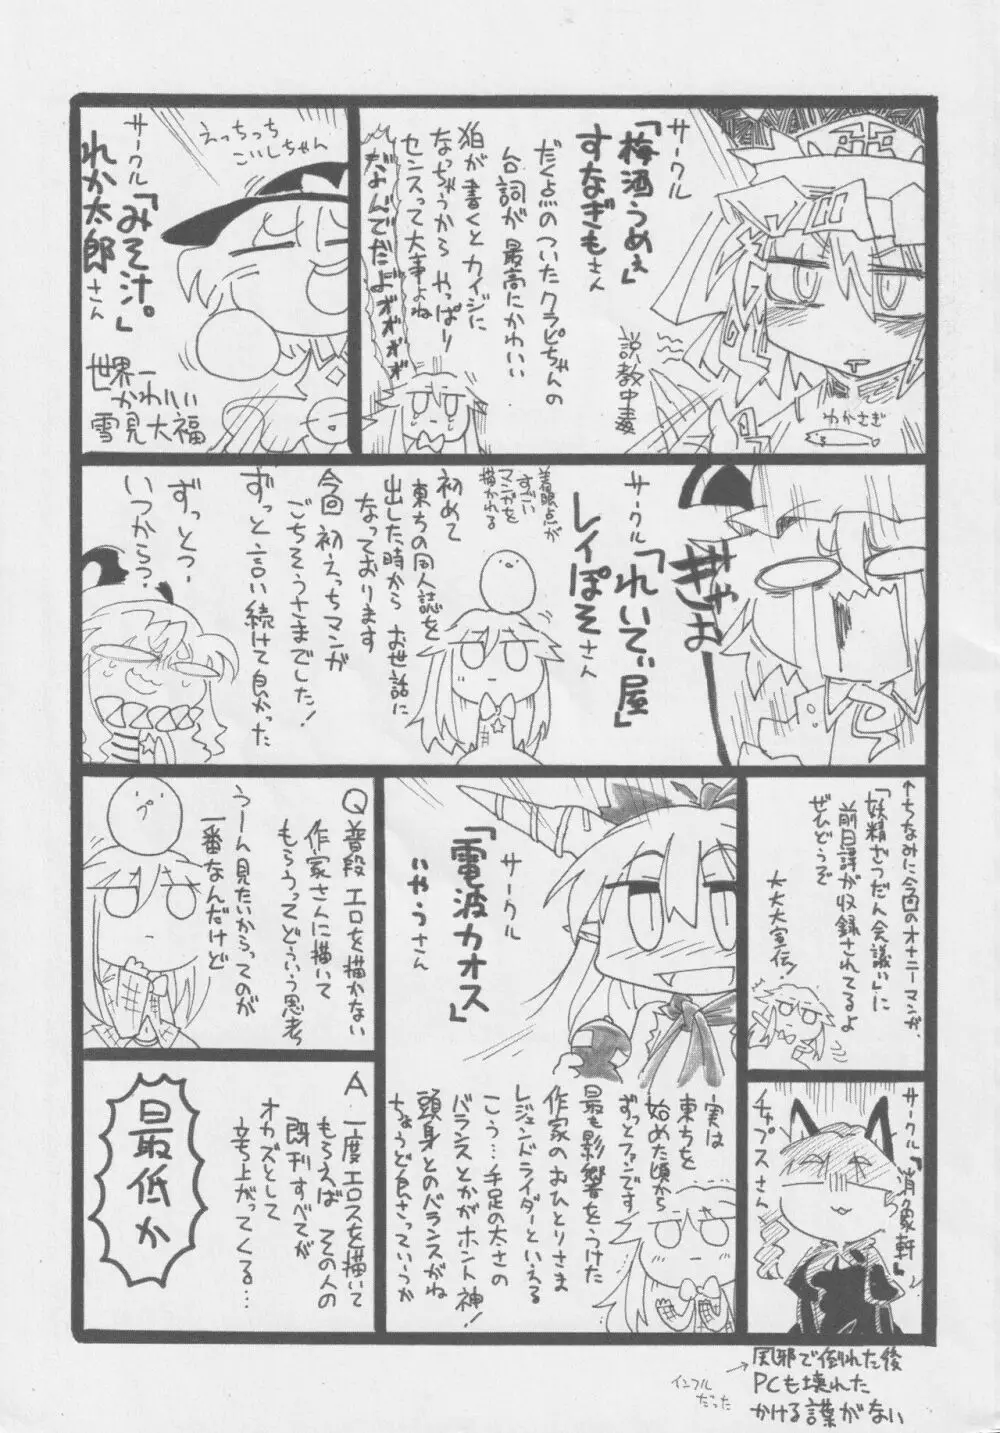 サークル
「梅酒うめぇ」
すなぎもさん
だく点のついたクラピちゃんの
台詞が最高にかわいい
狛が書くとカイジに
なっちゃうから やっぱー
センスって大事よね
だよ゛ん゛でだよ゛ォ゛ォ゛ォ゛ォ゛
説教中毒
わかさぎ
えっちっち
こいしちゃん
サークル
「みそ汁。」
れか太郎さん
世界一
かわいい
雪見大福
ぎゃお
サークル
「れいてぃ屋」
レイぽそさん
着眼点が
すごい
マンガを
描かれる
初めて
東方の同人誌を
出した時から お世話に
なっております
今回 初えっちマンガ
ごちそうさまでした!
ずっと言い続けて良かった
ずっとっ?
いつからっ?
↑ちなみに今回のオナニーマンガ
「妖精がつだん会議ぃ」に
前日譚が収録されてるよ
ぜひどうぞ
大大大宣伝!
サークル
「電波カオス」
いやうさん
実は
東方を
始めた頃から
ずっとファンです
最も影響をうけた
作家のおひとりさま
レジェンドライダーといえる
こう…手足の太さの
バランスとかがホント神!
頭身とのバランスがね
ちょうど良さっていうか
Q 普段エロを描かない
作家さんに描いて
もらうってどういう思考
うーん見たいからってのが
一番なんだけど
A.一度エロスを描いて
もらえば その人の
既刊すべてが
オカズとして
立ち上がってくる…
最低か
サークル「消象軒」
チャプスさん
→風邪で倒れた後
PCも壊れた
かける言葉がない
インフル
だった